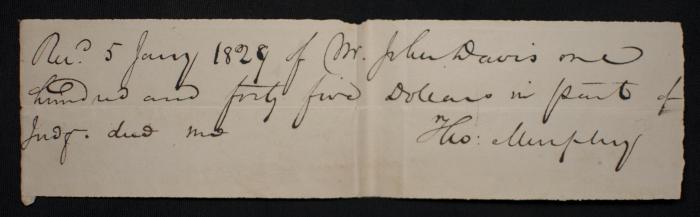 Rec.d 5 Jany 1829 of Mr. John Davis one
hundred and forty five Dolears in part of
Judg. due me
Tho: Murphy